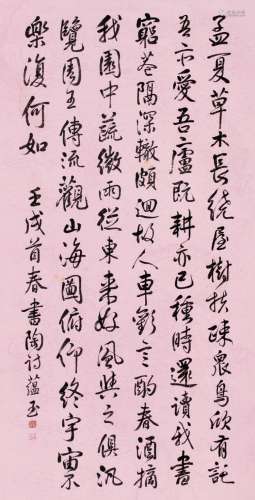 孟夏草木長繞屋樹扶疎眾鳥欣有託
吾亦愛吾廬既耕亦已種時還讀我書
窮巷隔深轍頗迴故人車歡言酌春酒摘
我園中蔬微雨從東來好風與之俱汎
覽周王傳流觀山海圖俯仰終宇宙不
樂復何如 壬戌首春書陶詩蘊玉